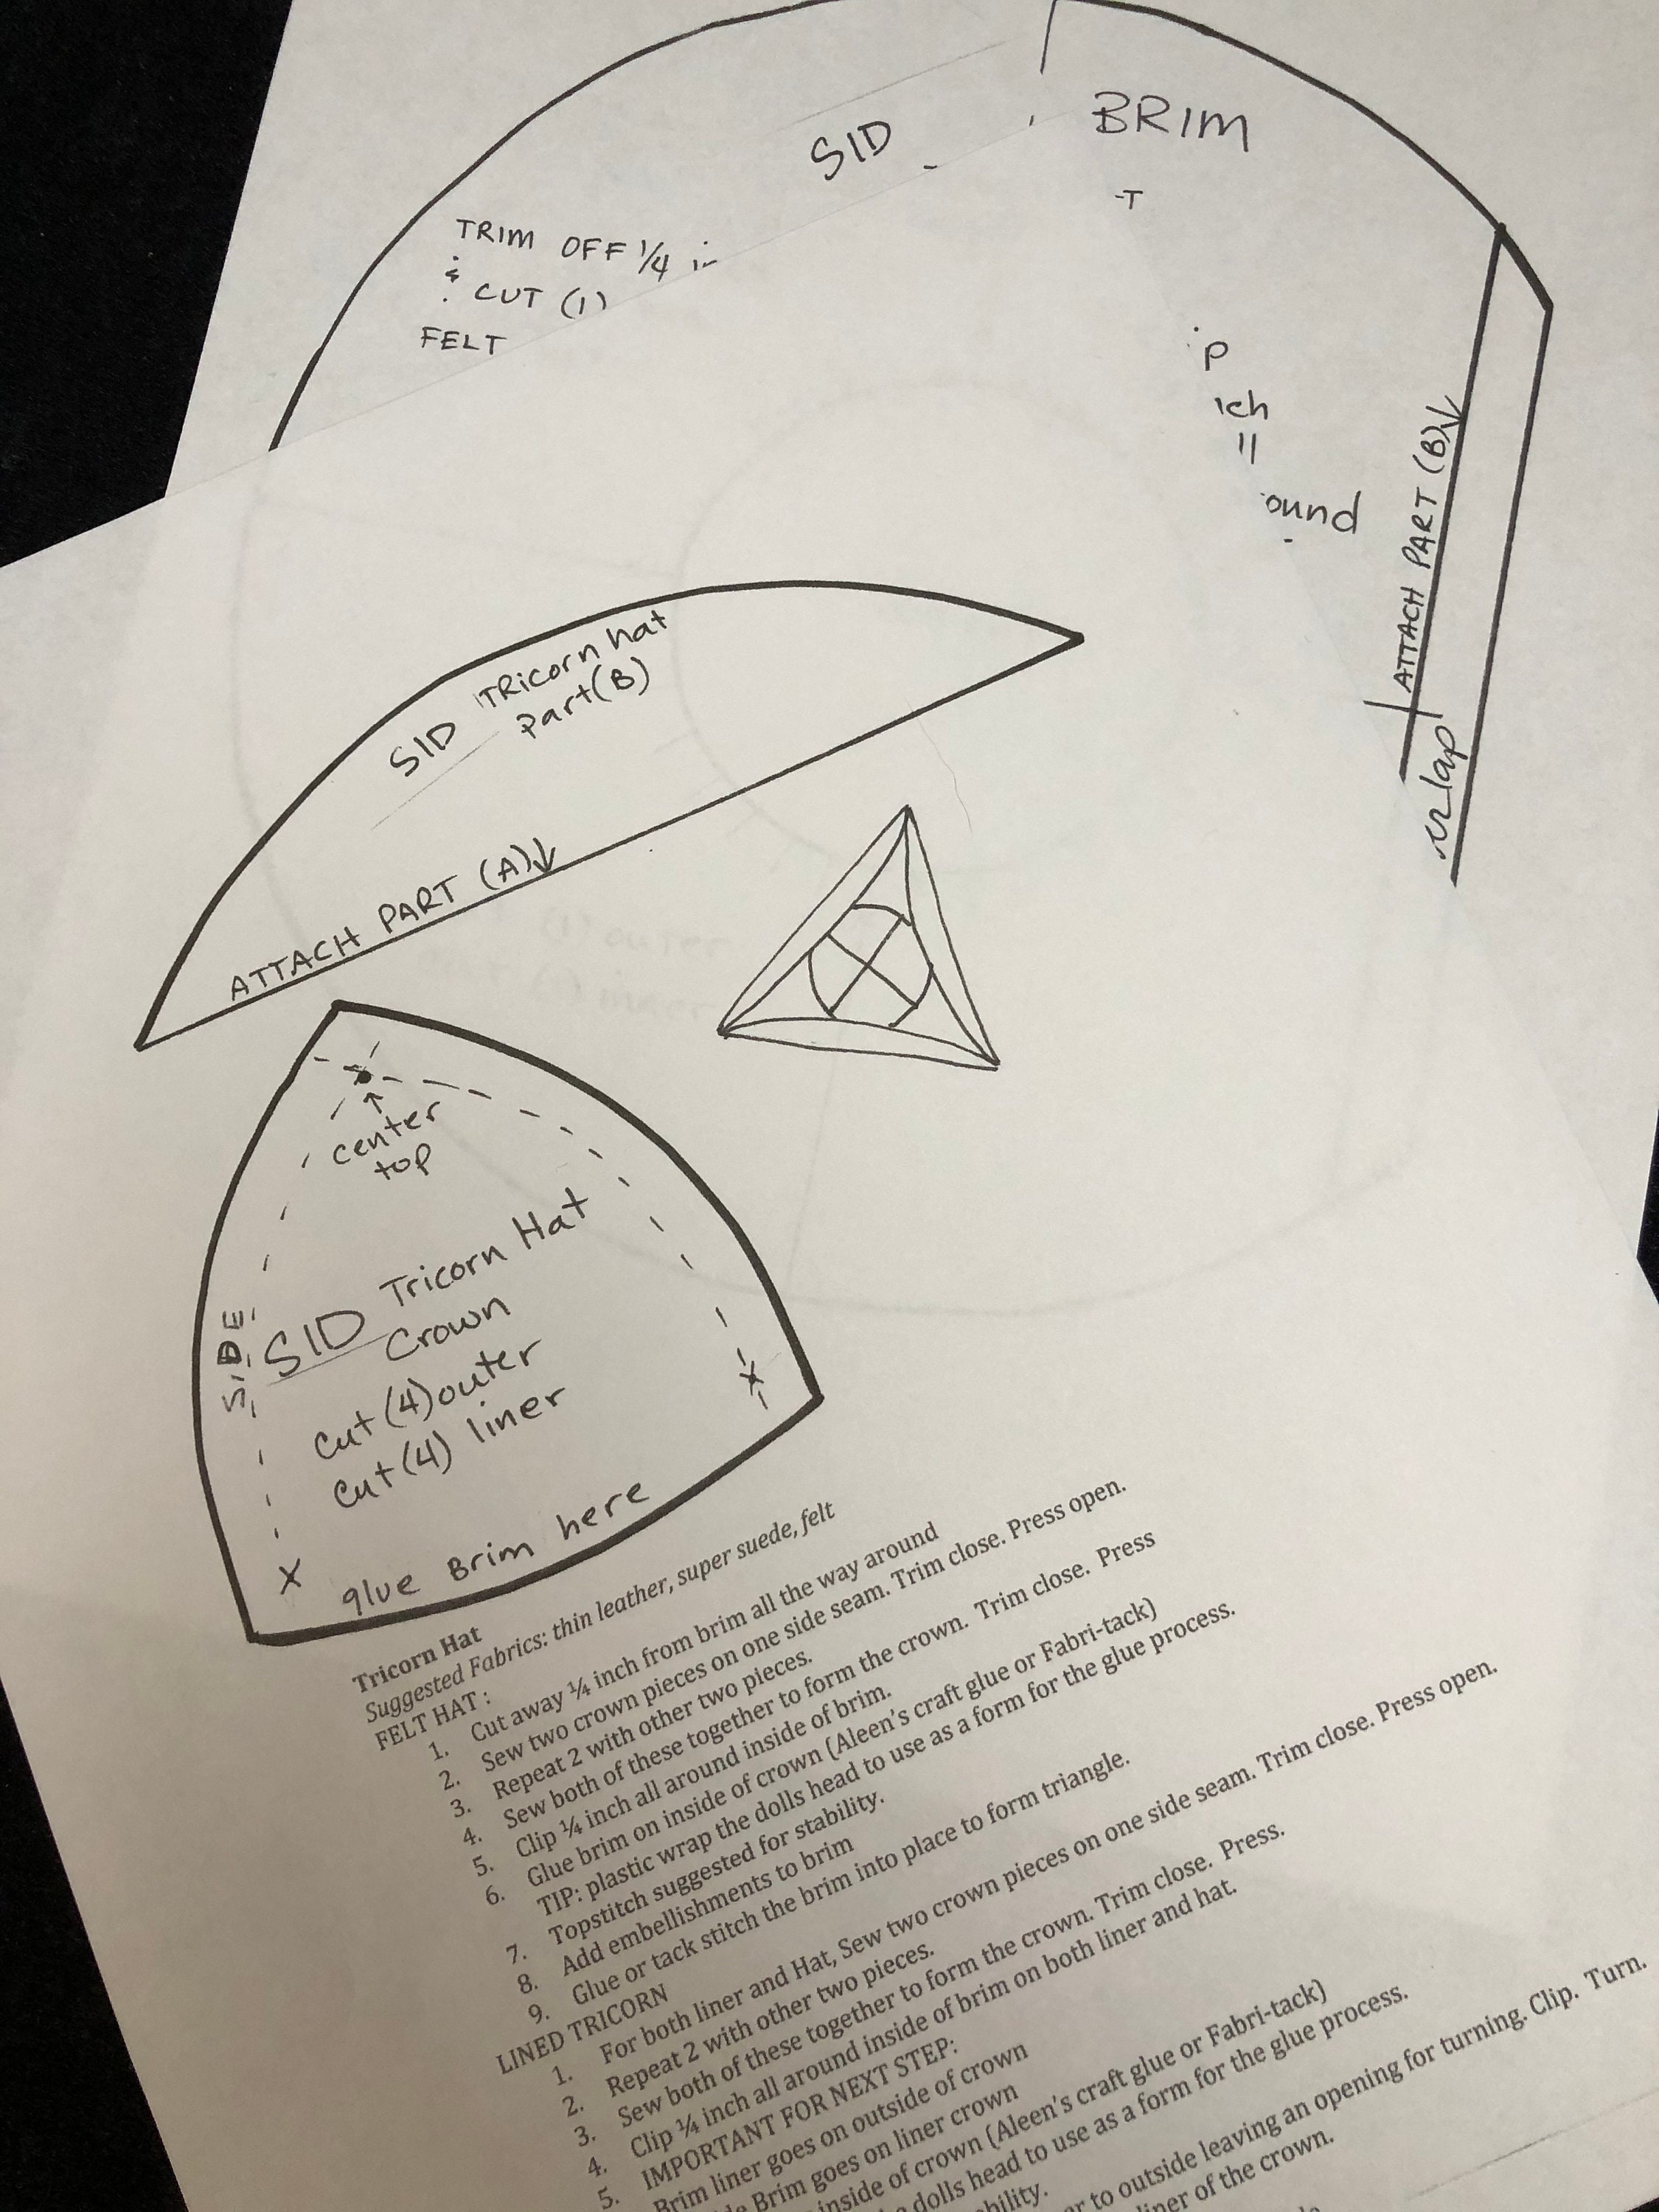 SID
BRIM
TRIM OFF 1/4 in
& CUT (1)
FELT
ound
ATTACH PART (B)↓
SID TRicorn hat
Part(B)
ATTACH PART (A)↓
center
top
SIDE
SID Tricorn Hat
Crown
Cut (4) outer
Cut (4) liner
X
X
glue Brim here
Tricorn Hat
Suggested Fabrics: thin leather, super suede, felt
FELT HAT :
1. Cut away ¼ inch from brim all the way around
2. Sew two crown pieces on one side seam. Trim close. Press open.
3. Repeat 2 with other two pieces.
4. Sew both of these together to form the crown. Trim close. Press
5. Clip ¼ inch all around inside of brim.
6. Glue brim on inside of crown (Aleen's craft glue or Fabri-tack)
TIP: plastic wrap the dolls head to use as a form for the glue process.
7. Topstitch suggested for stability.
8. Add embellishments to brim
9. Glue or tack stitch the brim into place to form triangle.
LINED TRICORN
1. For both liner and Hat, Sew two crown pieces on one side seam. Trim close. Press open.
2. Repeat 2 with other two pieces.
3. Sew both of these together to form the crown. Trim close. Press.
4. Clip ¼ inch all around inside of brim on both liner and hat.
5. IMPORTANT FOR NEXT STEP:
Brim liner goes on outside of crown
Brim goes on liner crown
inside of crown (Aleen's craft glue or Fabri-tack)
dolls head to use as a form for the glue process.
to outside leaving an opening for turning. Clip. Turn.
liner of the crown.